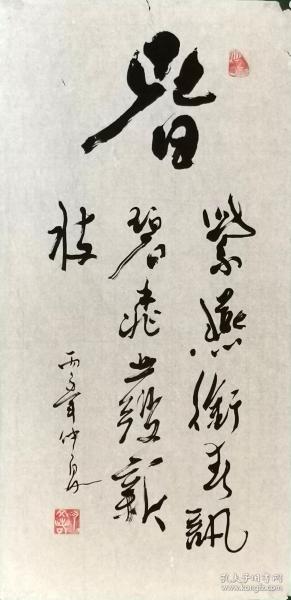 紫燕銜春訊
碧桃發新
枝
丙子年仲夏
孔夫子旧书网
www.kongfz.com